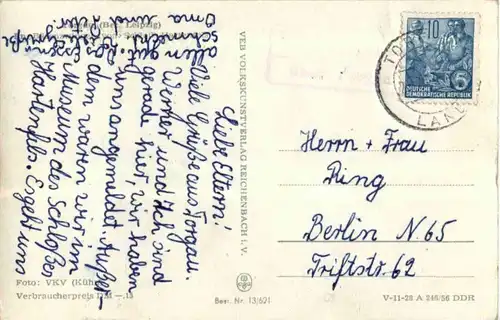 Torgau (Bez. Leipzig)
Liebe Eltern!
Viele Grüße aus Torgau.
Werner und Ich sind
gerade hier, wir haben
uns angemeldet. Außer-
dem waren wir im
Museum des Schloßes
Hartenfels. Es geht uns
allen gut.
schmeckt
Oma und
VEB VOLKSKUNSTVERLAG REICHENBACH i. V.
Foto: VKV (Kühn)
Verbraucherpreis DM —.15
Best. Nr. 13/621
10
DEUTSCHE
DEMOKRATISCHE REPUBLIK
Herrn + Frau
Ring
Berlin N. 65
Triftstr. 62
V-11-28 A 248/56 DDR